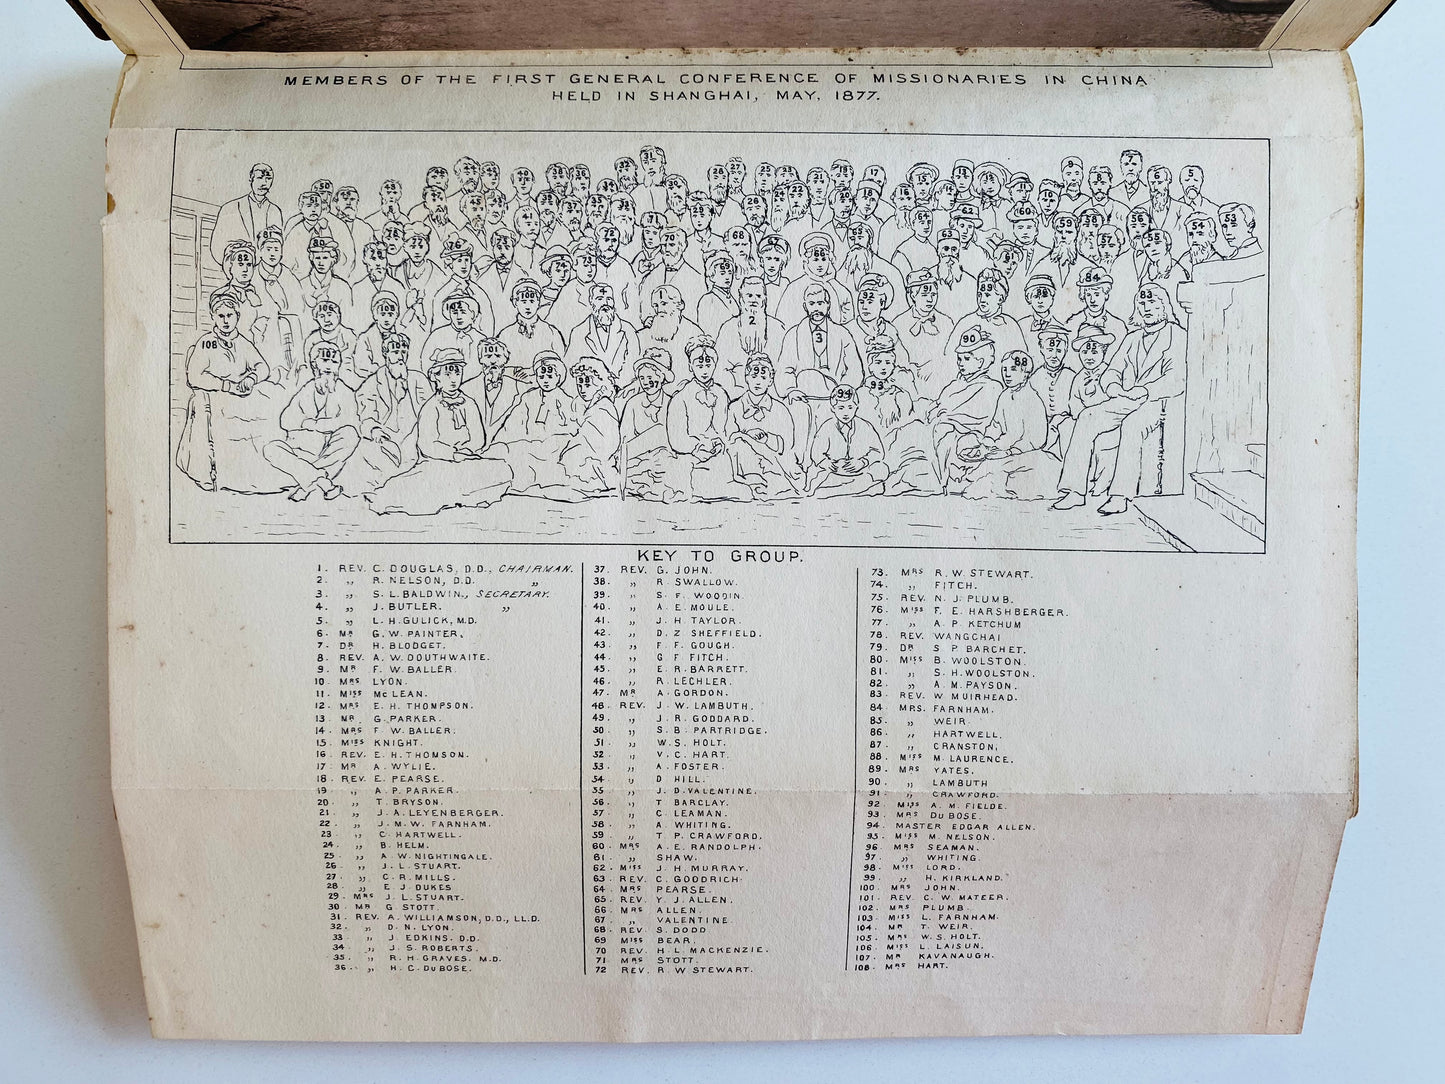 MEMBERS OF THE FIRST GENERAL CONFERENCE OF MISSIONARIES IN CHINA
HELD IN SHANGHAI, MAY, 1877.
KEY TO GROUP.
1. REV. C. DOUGLAS, D.D., CHAIRMAN.
2. „ R. NELSON, D.D. „
3. „ S. L. BALDWIN., SECRETARY.
4. „ J. BUTLER. „
5. „ L. H. GULICK, M.D.
6. MR G. W. PAINTER.
7. DR H. BLODGET.
8. REV. A. W. DOUTHWAITE.
9. MR F. W. BALLER.
10. MRS LYON.
11. MISS McLEAN.
12. MRS E. H. THOMPSON.
13. MR G. PARKER.
14. MRS F. W. BALLER.
15. MISS KNIGHT.
16. REV. E. H. THOMSON.
17. MR A. WYLIE.
18. REV. E. PEARSE.
19. „ A. P. PARKER.
20. „ T. BRYSON.
21. „ J. A. LEYENBERGER.
22. „ J. M. W. FARNHAM.
23. „ C. HARTWELL.
24. „ B. HELM.
25. „ A. W. NIGHTINGALE.
26. „ J. L. STUART.
27. „ C. R. MILLS.
28. „ E. J. DUKES
29. MRS J. L. STUART.
30. MR G. STOTT.
31. REV. A. WILLIAMSON, D.D., LL.D.
32. „ D. N. LYON.
33. „ J. EDKINS. D.D.
34. „ J. S. ROBERTS.
35. „ R. H. GRAVES. M.D.
36. „ H. C. DuBOSE.
37. REV. G. JOHN.
38. „ R. SWALLOW.
39. „ S. F. WOODIN.
40. „ A. E. MOULE.
41. „ J. H. TAYLOR.
42. „ D. Z. SHEFFIELD.
43. „ F. F. GOUGH.
44. „ G. F. FITCH.
45. „ E. R. BARRETT.
46. „ R. LECHLER.
47. MR A. GORDON.
48. REV. J. W. LAMBUTH.
49. „ J. R. GODDARD.
50. „ S. B. PARTRIDGE.
51. „ W. S. HOLT.
52. „ V. C. HART.
53. „ A. FOSTER.
54. „ D. HILL.
55. „ J. D. VALENTINE.
56. „ T. BARCLAY.
57. „ C. LEAMAN.
58. „ A. WHITING.
59. „ T. P. CRAWFORD.
60. MRS A. E. RANDOLPH.
61. „ SHAW.
62. MISS J. H. MURRAY.
63. REV. C. GOODRICH.
64. MRS PEARSE.
65. REV. Y. J. ALLEN.
66. MRS ALLEN.
67. „ VALENTINE.
68. REV. S. DODD
69. MISS BEAR.
70. REV. H. L. MACKENZIE.
71. MRS STOTT.
72. REV. R. W. STEWART.
73. MRS R. W. STEWART.
74. „ FITCH.
75. REV. N. J. PLUMB.
76. MISS F. E. HARSHBERGER.
77. „ A. P. KETCHUM
78. REV. WANGCHAI
79. DR S. P. BARCHET.
80. MISS B. WOOLSTON.
81. „ S. H. WOOLSTON.
82. „ A. M. PAYSON.
83. REV. W. MUIRHEAD.
84. MRS. FARNHAM.
85. „ WEIR.
86. „ HARTWELL.
87. „ CRANSTON.
88. MISS M. LAURENCE.
89. MRS YATES.
90. „ LAMBUTH
91. „ CRAWFORD.
92. MISS A. M. FIELDE.
93. MRS DUBOSE.
94. MASTER EDGAR ALLEN.
95. MISS M. NELSON.
96. MRS SEAMAN.
97. „ WHITING.
98. MISS LORD.
99. „ H. KIRKLAND.
100. MRS JOHN.
101. REV. C. W. MATEER.
102. MRS PLUMB.
103. MISS L. FARNHAM.
104. MR T. WEIR.
105. MRS W. S. HOLT.
106. MISS L. LAISUN.
107. MR KAVANAUGH.
108. MRS HART.